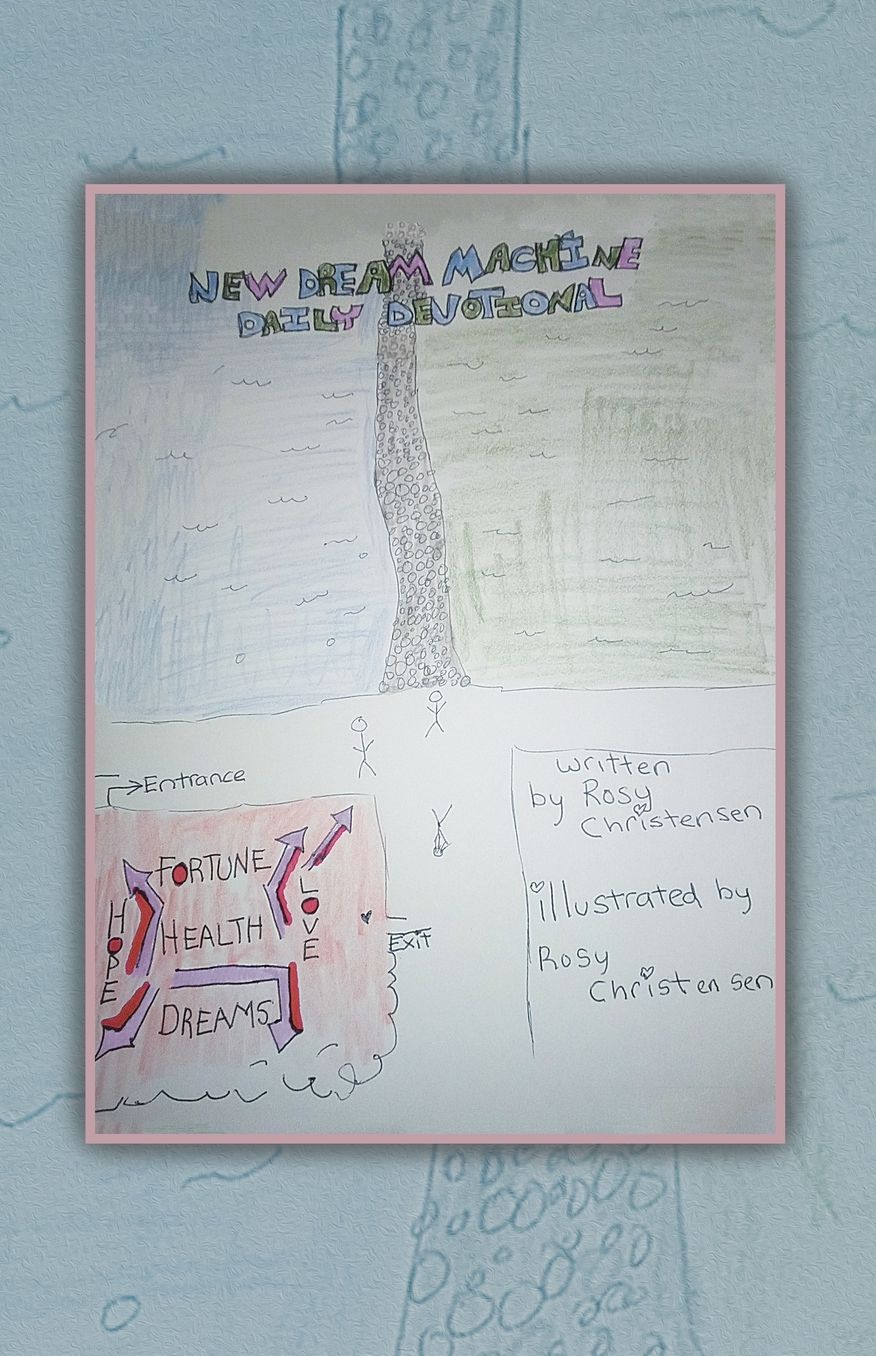 NEW DREAM MACHINE
DAILY DEVOTIONAL
Entrance
FORTUNE
HOPE
HEALTH
LOVE
DREAMS
Exit
written
by Rosy
Christensen
illustrated by
Rosy
Christensen